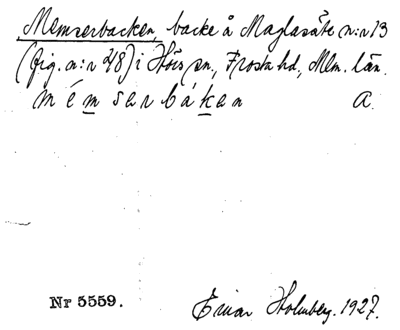 Memserbacken, backe å Maglasäte n:r 13
(fig. n:r 48) i Hörs sn, Frosta hd, Mlm. län.
mémserbákan A.
Nr 5559.
Einar Holmberg. 1927.